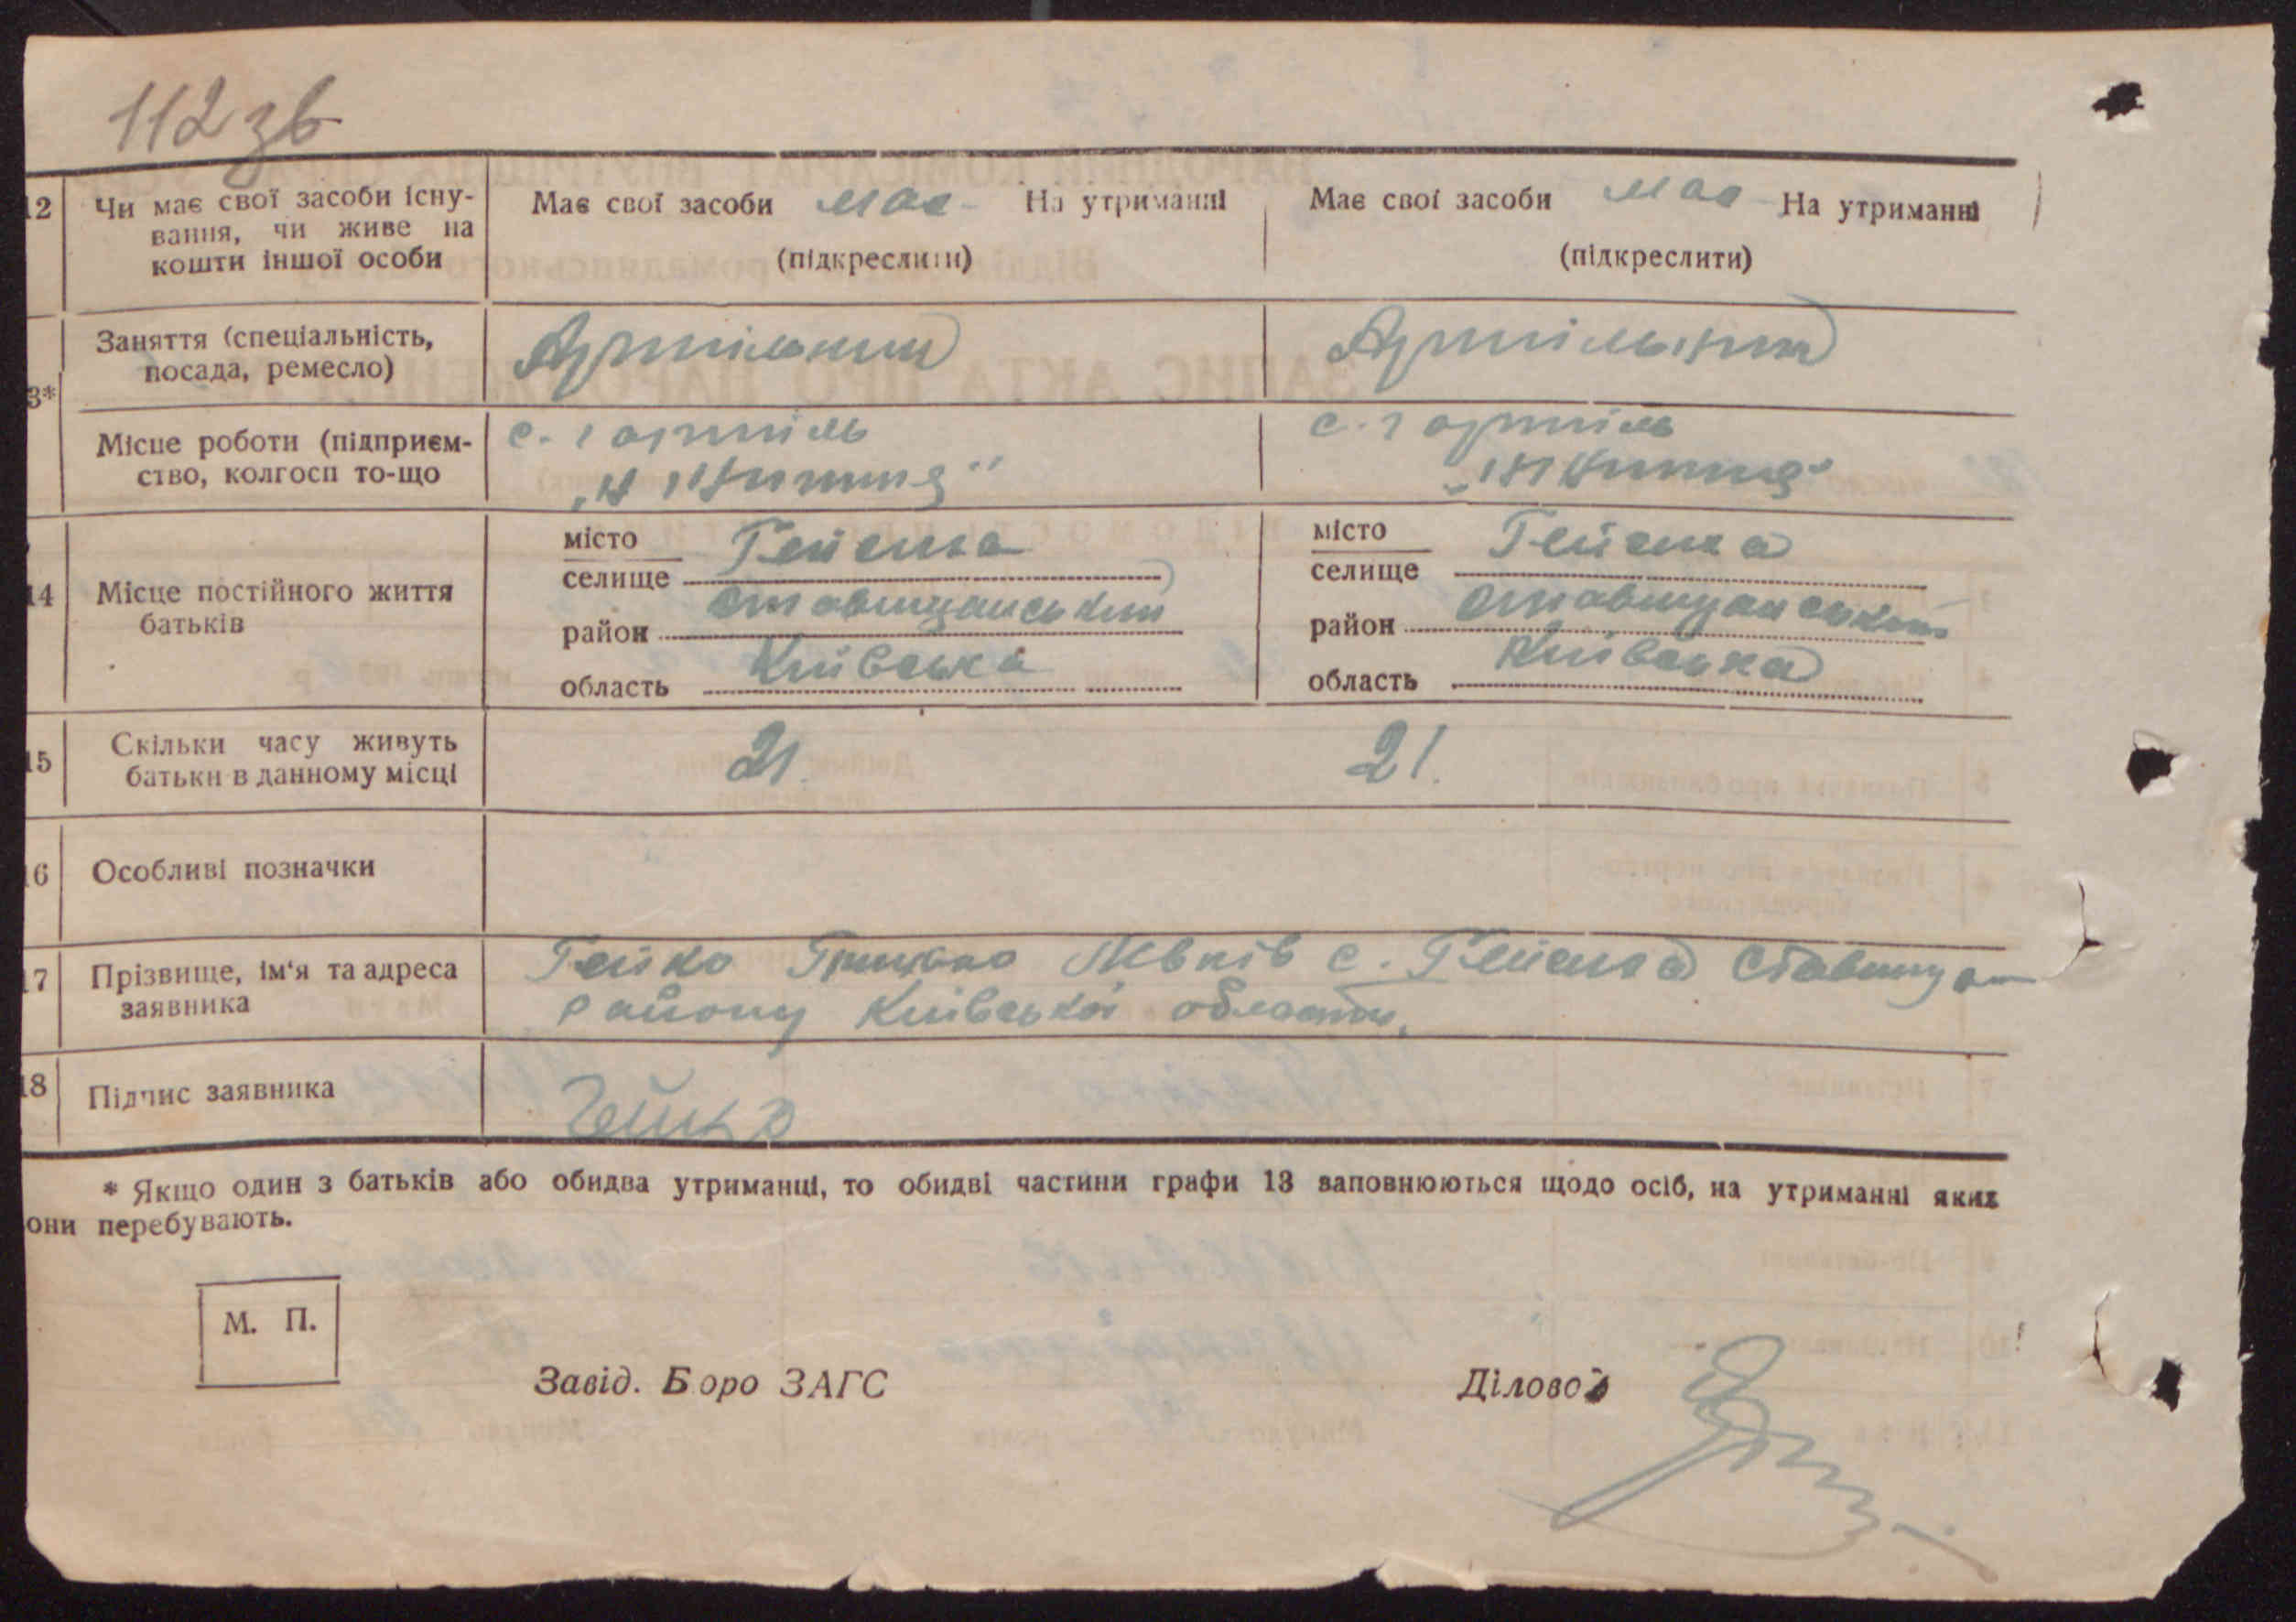 112 зв
12 Чи має свої засоби існу- Має свої засоби має На утриманні Має свої засоби має На утриманні
вання, чи живе на
кошти іншої особи (підкреслити) (підкреслити)
Заняття (спеціальність, Артільник Артільник
посада, ремесло)
3*
Місце роботи (підприєм- с. г артіль с. г артіль
ство, колгосп то-що
місто Гейсиха місто Гейсиха
14 Місце постійного життя селище селище
батьків район Ставищанський район Ставищанський
область Київська область Київська
15 Скільки часу живуть 21. 21.
батьки в данному місці
16 Особливі позначки
17 Прізвище, ім'я та адреса Гейко с. Гейсиха Ставищан
заявника району Київської області.
18 Підпис заявника Гейко
* Якщо один з батьків або обидва утриманці, то обидві частини графи 13 заповнюються щодо осіб, на утриманні яких
вони перебувають.
М. П.
Завід. Бюро ЗАГС Діловод